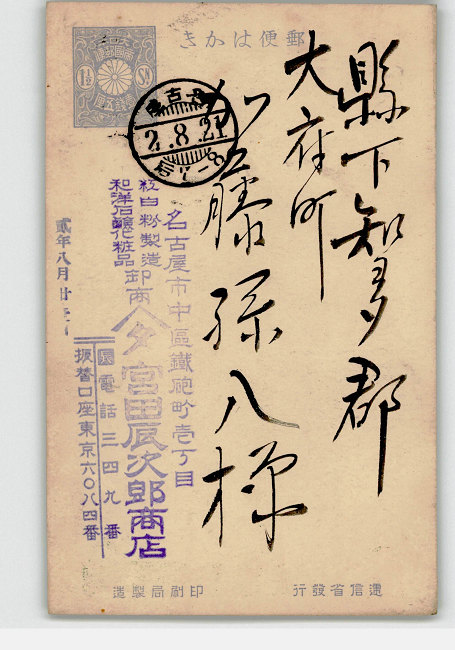 郵便はかき
1½ Sn
縣下知多郡
大府町
加藤孫八様
名古屋
2.8.21
后
名古屋市中區鐵砲町壱丁目
紅白粉製造
和洋石鹸化粧品
卸商
宮田辰次郎商店
電話三四九番
振替口座東京六〇八四番
貳年八月廿
逓信省發行
印刷局製造